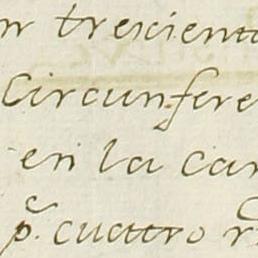 n trecient
circunfere
en la car
p. cuattro r